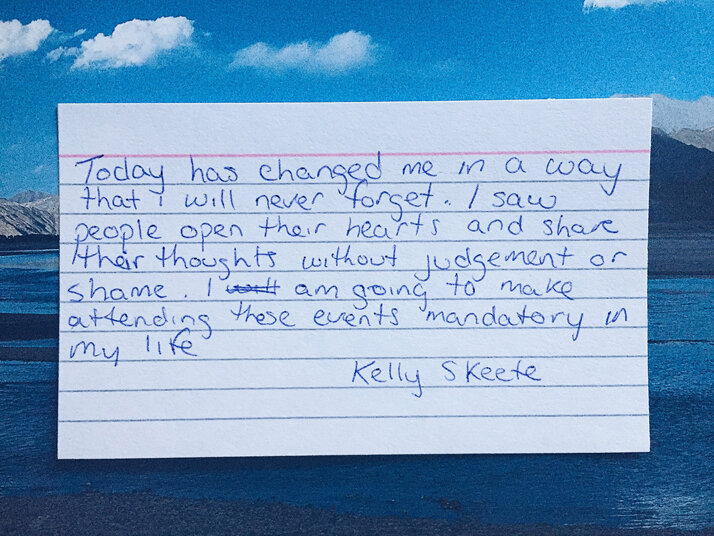 Today has changed me in a way
that i will never forget. I saw
people open their hearts and share
their thoughts without judgement or
shame. I am going to make
attending these events mandatory in
my life
Kelly Skeete